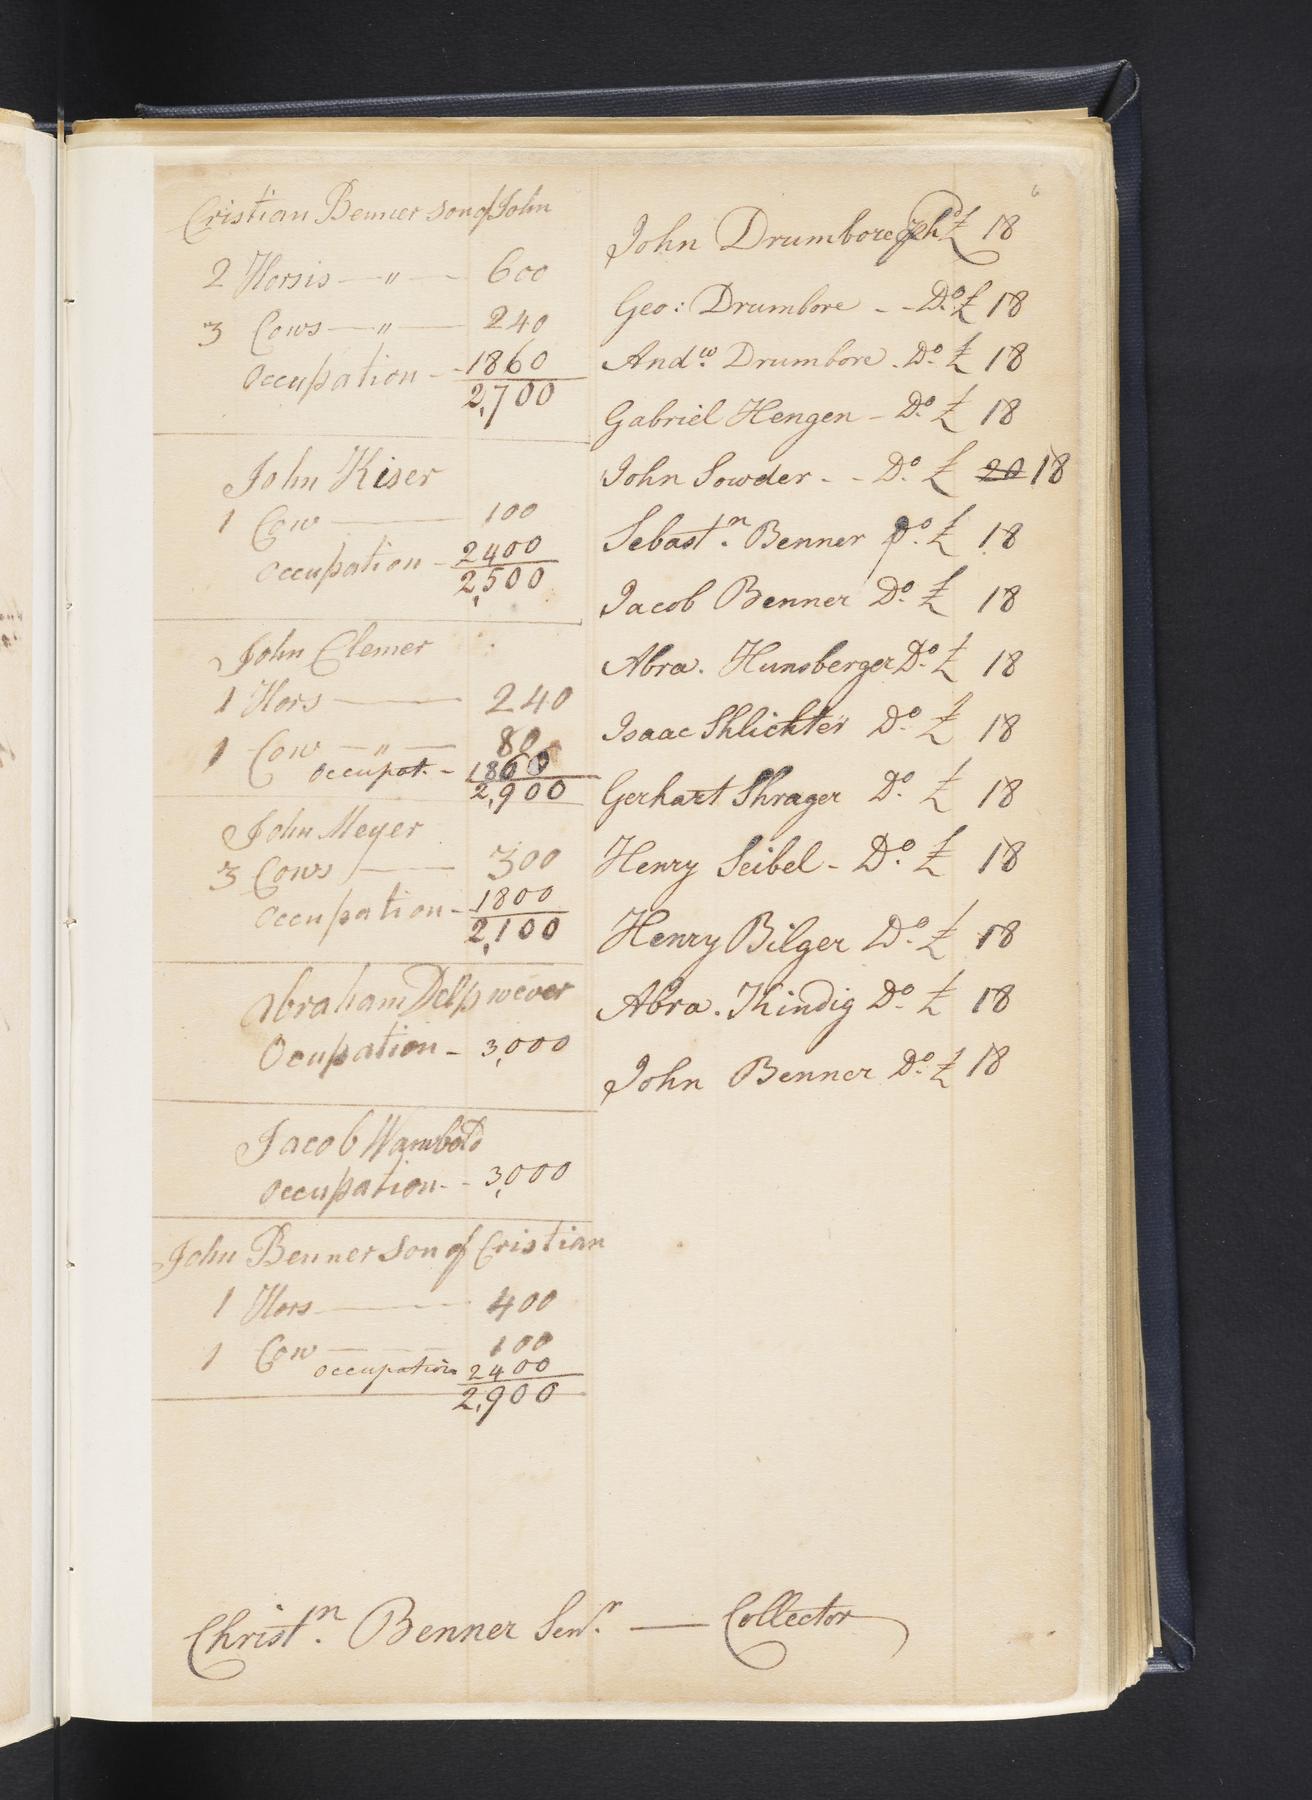 6
Cristian Benner son of John
2 Horsis — " — 600
3 Cows — " — 240
Occupation - 1860
2,700
John Kiser
1 Cow — 100
Occupation - 2400
2,500
John Clemer
1 Hors — 240
1 Cow — " — 80
Occupat. - 1860
2,900
John Meyer
3 Cows — 300
Occupation - 1800
2,100
Abraham Delp wever
Ocupation - 3,000
Jacob Wambold
Occupation - - 3,000
John Benner Son of Cristian
1 Hors — 400
1 Cow — 100
Occupation 2400
2,900
John Drumbore £ 18
Geo: Drumbore - - Do. £ 18
Andw. Drumbore - Do. £ 18
Gabriel Hengen - Do. £ 18
John Sowder - - Do. £ 20 18
Sebastn. Benner Do. £ 18
Jacob Benner Do. £ 18
Abra. Hunsberger Do. £ 18
Isaac Shlichter Do. £ 18
Gerhart Shrager Do. £ 18
Henry Seibel - Do. £ 18
Henry Bilger Do. £ 18
Abra. Kindig Do. £ 18
John Benner Do. £ 18
Christn. Benner Senr. — Collector